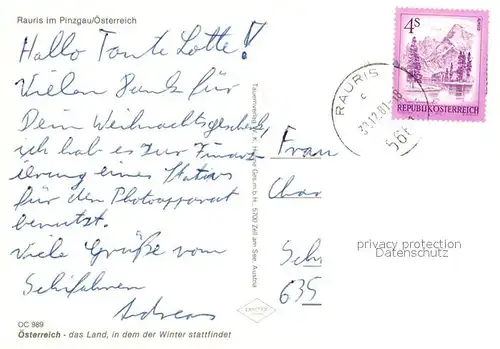 Rauris im Pinzgau/Österreich
Hallo Tante Lotte!
Vielen Dank für
Dein Weihnachtsgeschenk,
ich hab es zur Finanz-
ierung eines Stativs
für den Photoapparat
benutzt.
Viele Grüße vom
Schifahren
Andreas
OC 989
Österreich - das Land, in dem der Winter stattfindet
Ges.m.b.H., 5700 Zell am See, Austria
4S
REPUBLIK ÖSTERREICH
RAURIS
30.12.81-18
566
Frau
Char
Sch
635
privacy protection
Datenschutz